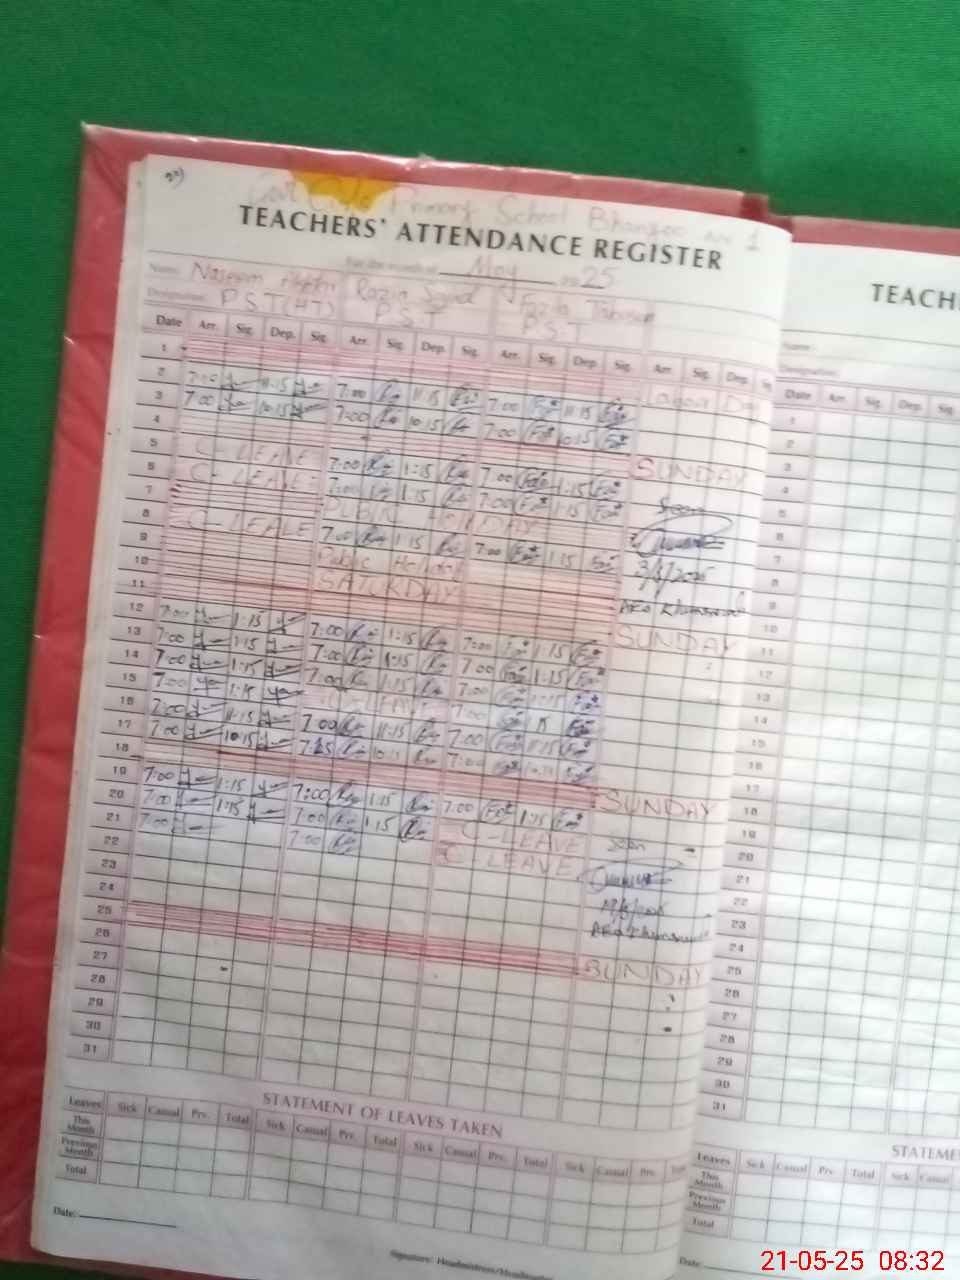 Primary School Bhangoo No 1
TEACHERS' ATTENDANCE REGISTER
TEACH
For the month of May 2025
Name: Naseem Akhtar Razia Fozia
Designation: P.S.T(HT) P.S.T P.S.T
Date Arr. Sig. Dep. Sig. Arr. Sig. Dep. Sig. Arr. Sig. Dep. Sig. Arr. Sig. Dep. Sig.
1 Day
2 7:00 11:15 7:00 11:15 7:00 11:15
3 7:00 10:15 7:00 10:15 7:00 10:15
4 SUNDAY
5 C-LEAVE 7:00 1:15 7:00 1:15
6 C-LEAVE 7:00 1:15 7:00 1:15
7 PUBLIC HOLIDAY
8 C-LEALE 7:00 1:15 7:00 1:15
9 Public Holiday
10 SATURDAY
11 SUNDAY
12 7:00 1:15 7:00 1:15 7:00 1:15
13 7:00 1:15 7:00 1:15 7:00 1:15
14 7:00 1:15 7:00 1:15 7:00 1:15
15 7:00 1:15 C-LEAVE 7:00 1:15
16 7:00 11:15 7:00 11:15 7:00 11:15
17 7:00 10:15 7:15 10:15 7:00 10:15
18 SUNDAY
19 7:00 1:15 7:00 1:15 7:00 1:15
20 7:00 1:15 7:00 1:15 C-LEAVE
21 7:00 7:00 C-LEAVE
22
23
24
25 SUNDAY
26
27
28
29
30
31
Seen
3/5/2025
AEO
Seen
19/5/2025
AEO
STATEMENT OF LEAVES TAKEN
Leaves Sick Casual Prv. Total Sick Casual Prv. Total Sick Casual Prv. Total Sick Casual Prv. Total
This Month
Previous Month
Total
Date:
Signature: Headmistress/Headmaster
Name:
Designation:
Date Arr. Sig. Dep. Sig.
1
2
3
4
5
6
7
8
9
10
11
12
13
14
15
16
17
18
19
20
21
22
23
24
25
26
27
28
29
30
31
STATEME
Leaves Sick Casual Prv. Total Sick Casual
This Month
Previous Month
Total
Date:
21-05-25 08:32